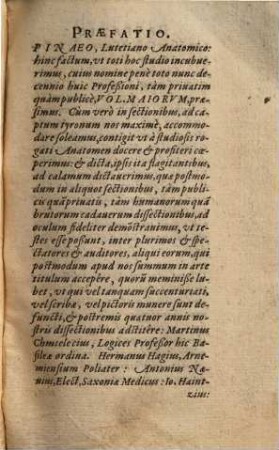 PRÆFATIO.
PINAEO, Lutetiano Anatomico:
hinc factum, vt toti hoc studio incubue-
rimus, cui in nomine penè toto nunc de-
cennio huic Professioni, tàm priuatim
quàm publicè, VOL. MAIORVM, præ-
simus. Cum verò in sectionibus, ad ca-
ptum tyronum nos maximè, accommo-
dare soleamus, contigit vt à studiosis ro-
gati Anatomen docere & profiteri cœ-
perimus: & dicta, ipsis ita flagitantibus,
ad calamum dictauerimus, quæ postmo-
dum in aliquot sectionibus, tàm publi-
cis quàm priuatis, tàm humanorum quàm
brutorum cadauerum dissectionibus, ad
oculum fideliter demõstrauimus, vt te-
stes esse possunt, inter plurimos & spe-
ctatores & auditores, aliqui eorum, qui
postmodum apud nos summum in arte
titulum accepére, quorũ meminisse lu-
bet, vt qui vel tanquam succenturiati,
vel scribæ, vel pictoris munere sunt de-
functi, & postremis quatuor annis no-
stris dissectionibus adstitêre: Martinus
Chmielecius, Logices Professor hic Ba-
sileæ ordina. Hermanus Hagius, Arne-
miensium Poliater: Antonius Næ-
uius, Elect. Saxoniæ Medicus: Io. Haint-
zius: